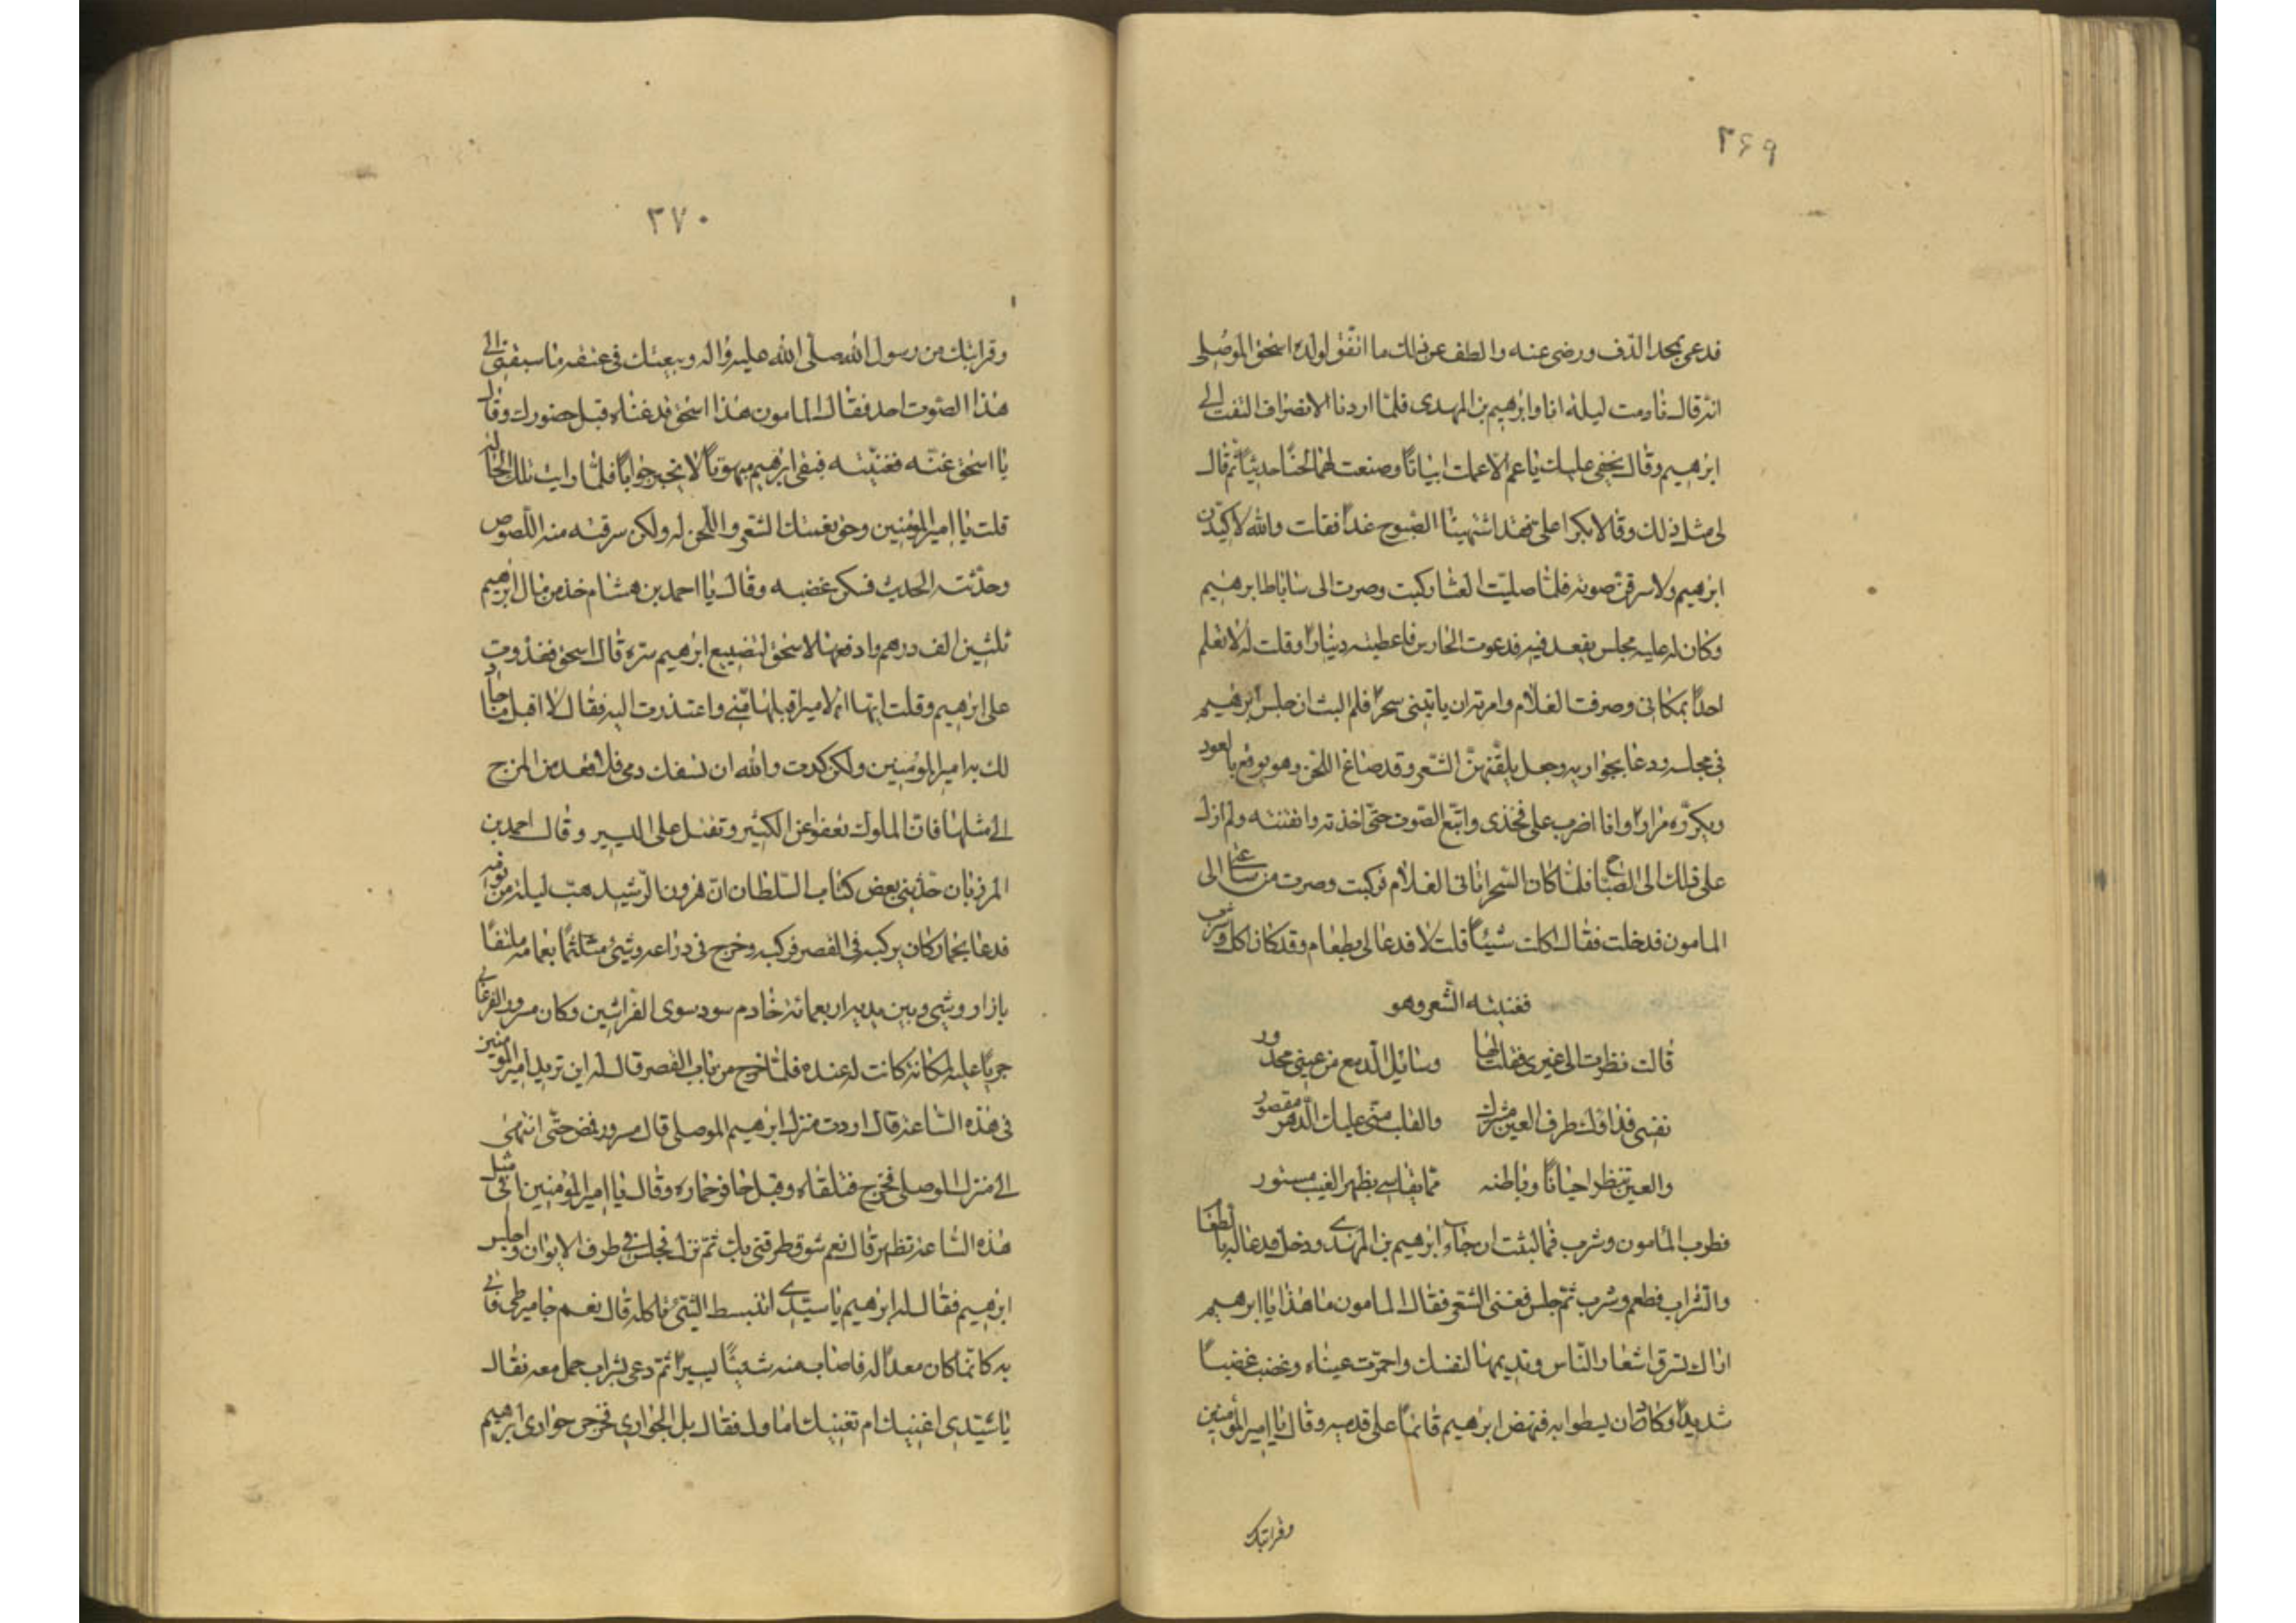 ٣٦٩
فدعى بمجد الدّف ورضى عنه والطف عن ذلك ما اتّفق لولده اسحق الموصلى
انه قال نادمت ليلة انا وابرهيم بن المهدى فلمّا اردنا الانصراف التفت الى
ابرهيم وقال بحقى عليك يا عم الا عملت ابياتًا وصنعت لها لحنًا حديثًا ثم قال
لى مثل ذلك وقال بكرا على فقد اشتهيت الصبوح غدًا فقلت والله لاكيدن
ابرهيم ولاسرقن صوته فلمّا صليّت العشا ركبت وصرت الى ساباط ابرهيم
وكان له عليه مجلس يقعد فيه فدعوت الحارس فاعطيته دينارًا وقلت له لا تعلم
احدًا بمكانى وصرفت الغلام وامرته ان ياتينى سحرًا فلم البث ان جلس ابرهيم
فى مجلسه ودعا بجواريه وجعل يلقّنهنّ الشعر وقد صاغ اللحن وهو يوقع بالعود
ويكرّره مرارًا وانا اضرب على فخذى واتبّع الصّوت حتّى اخذته واتقنته ولم ازل
على ذلك الى الصّباح فلمّا كان السّحر اتانى الغلام فركبت وصرت من ساعتى الى
المامون فدخلت فقال اكلت شيئًا قلت لا فدعا لى بطعام وقد كان اكل وشرب
فغنيته الشّعر وهو
قالت نظرت الى غيرى فقلت لها وسايل الدّمع من عينى محدور
نفسى فداؤك طرف العين مشترك والقلب منّى عليك الدّهر مقصور
والعين تنظر احيانًا وباطنه ممّا يقاسى بظهر الغيب مستور
فطرب المأمون وشرب فما لبثت ان جاء ابرهيم بن المهدى ودخل فدعا له بالطعام
والشّراب فطعم وشرب ثمّ جلس فغنى الشّعر فقال المامون ما هذا يا ابرهيم
اراك تسرق اشعار النّاس وتديمها لنفسك واحمرّت عيناه وغضب غضبًا
شديدًا وكاد ان يسطوا به فنهض ابرهيم قائمًا على قدميه وقال يا امير المؤمنين
وقرابتك
٣٧٠
وقرابتك من رسول الله صلّى الله عليه واله وبيعتك فى عنقه ما سبقنى الى
هذا الصّوت احد فقال المامون هذا اسحق قد غنّاه قبل حضورك وقال
يا اسحق غنّه فغنيّته فبقى ابرهيم مبهوتًا لا يحير جوابًا فلمّا رايت تلك الحاله
قلت يا امير المؤمنين وحق نفسك الشّعر واللّحن له ولكن سرقته منه اللّصوص
وحدّثته الحديث فسكن غضبه وقال يا احمد بن هشام خذ من مال ابرهيم
ثلثين الف درهم وادفعها لاسحق لتضييع ابرهيم سرّه قال اسحق فغدوت
على ابرهيم وقلت ايها الامير اقبلها منّى واعتذرت اليه فقال لا اقبل ما جاد
لك به امير المؤمنين ولكن كدت والله ان تسفك دمى فلا تعد من المزح
الى مثلها فانّ الملوك تعفو عن الكثير وتقتل على اليسير وقال احمد بن
المرزبان حدّثنى بعض كتّاب السّلطان انّ هرون الرّشيد هبّ ليلة من نومه
فدعا بحمار كان يركبه فى القصر فركبه وخرج فى درّاعه وشى متلثمًا بعمامه ملتفًا
بازار وشى وبين يديه اربعمائة خادم سود سوى الفرّاشين وكان مسرور الفرغانى
جريًا عليه لمكانة كانت له عنده فلمّا خرج من باب القصر قال له اين تريد يا امير المومنين
فى هذه السّاعة قال اردت منزل ابرهيم الموصلى قال مسرور فمضى حتّى انتهى
الى منزل الموصلى فخرج فتلقاه وقبل حافر حماره وقال يا امير المؤمنين افى مثل
هذه السّاعة تظهر قال نعم شوق طرقنى بك ثمّ نزل فجلس فى طرف الايوان واجلس
ابرهيم فقال له ابرهيم يا سيّدى اتنبسط الشىء تاكله قال نعم خاميز ظبى فاتى
به كانّما كان معدًّا له فاصاب منه شيئًا يسيرًا ثمّ دعى بشراب حمل معه فقال
يا سيّدى اغنيك ام تغنيك اماؤك فقال بل الجوارى فخرجن جوارى ابرهيم